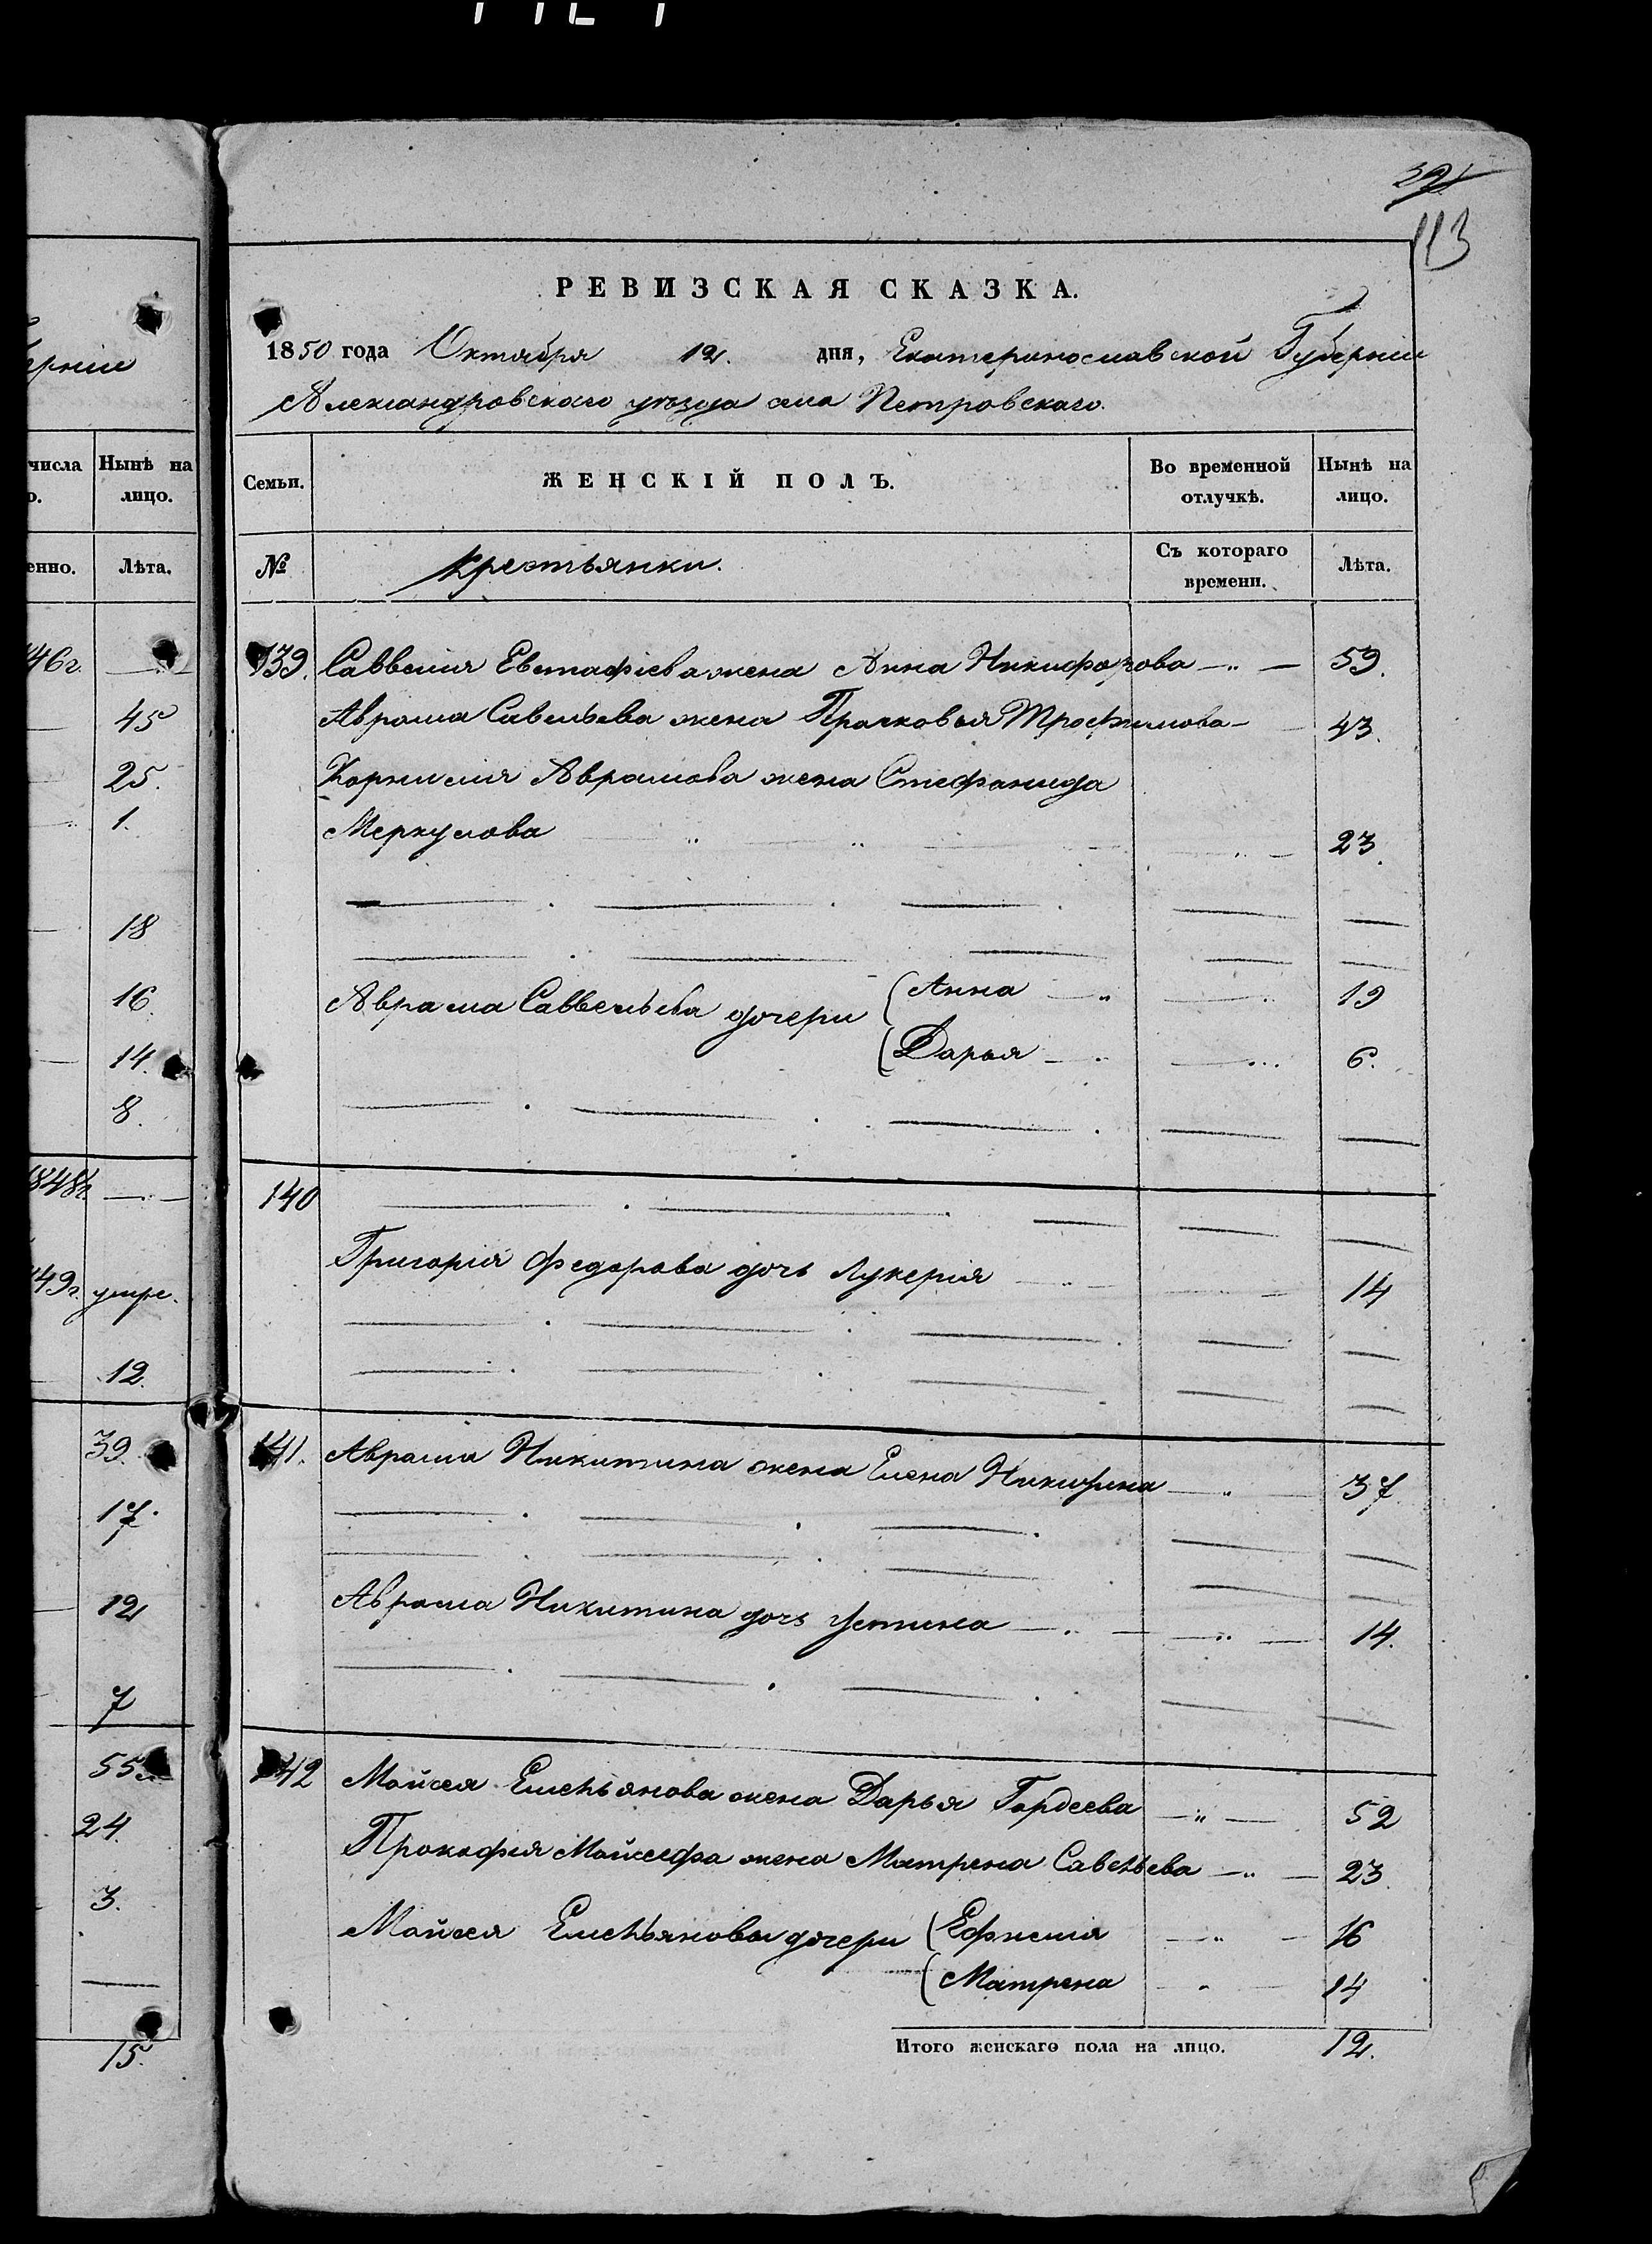 391
113
РЕВИЗСКАЯ СКАЗКА.
1850 года Октября 12. дня, Екатеринославской Губерніи
Александровскаго уѣзда села Петровскаго.
Семьи.
ЖЕНСКІЙ ПОЛЪ.
Во временной отлучкѣ.
Нынѣ на лицо.
№
Крестьянки.
Съ котораго времени.
Лѣта.
139. Саввелия Евстафіева жена Анна Никифорова — 59.
Аврама Савельева жена Прасковья Трофимова — 43.
Корнилия Аврамова жена Стефанида
Меркулова 23.
Аврама Саввельева дочери Анна — 19
Дарья — 6.
140
Григорія Федорова дочь Лукерія 14
141. Аврама Никитина жена Елена — 37
Аврама Никитина дочь Устина — 14.
142 Мойсея Емельянова жена Дарья Гордеева — 52
Прокофия Мойсеева жена Матрена Савельева — 23.
Мойсея Емельянова дочери Ефимия — 16
Матрена 14
Итого женскаго пола на лицо. 12.
ерніи
числа
о.
Нынѣ на лицо.
енно.
Лѣта.
46г.
45
25.
1.
18
16.
14.
8.
848г.
49г. умре.
12.
39.
17.
12
7
55.
24.
3.
15.